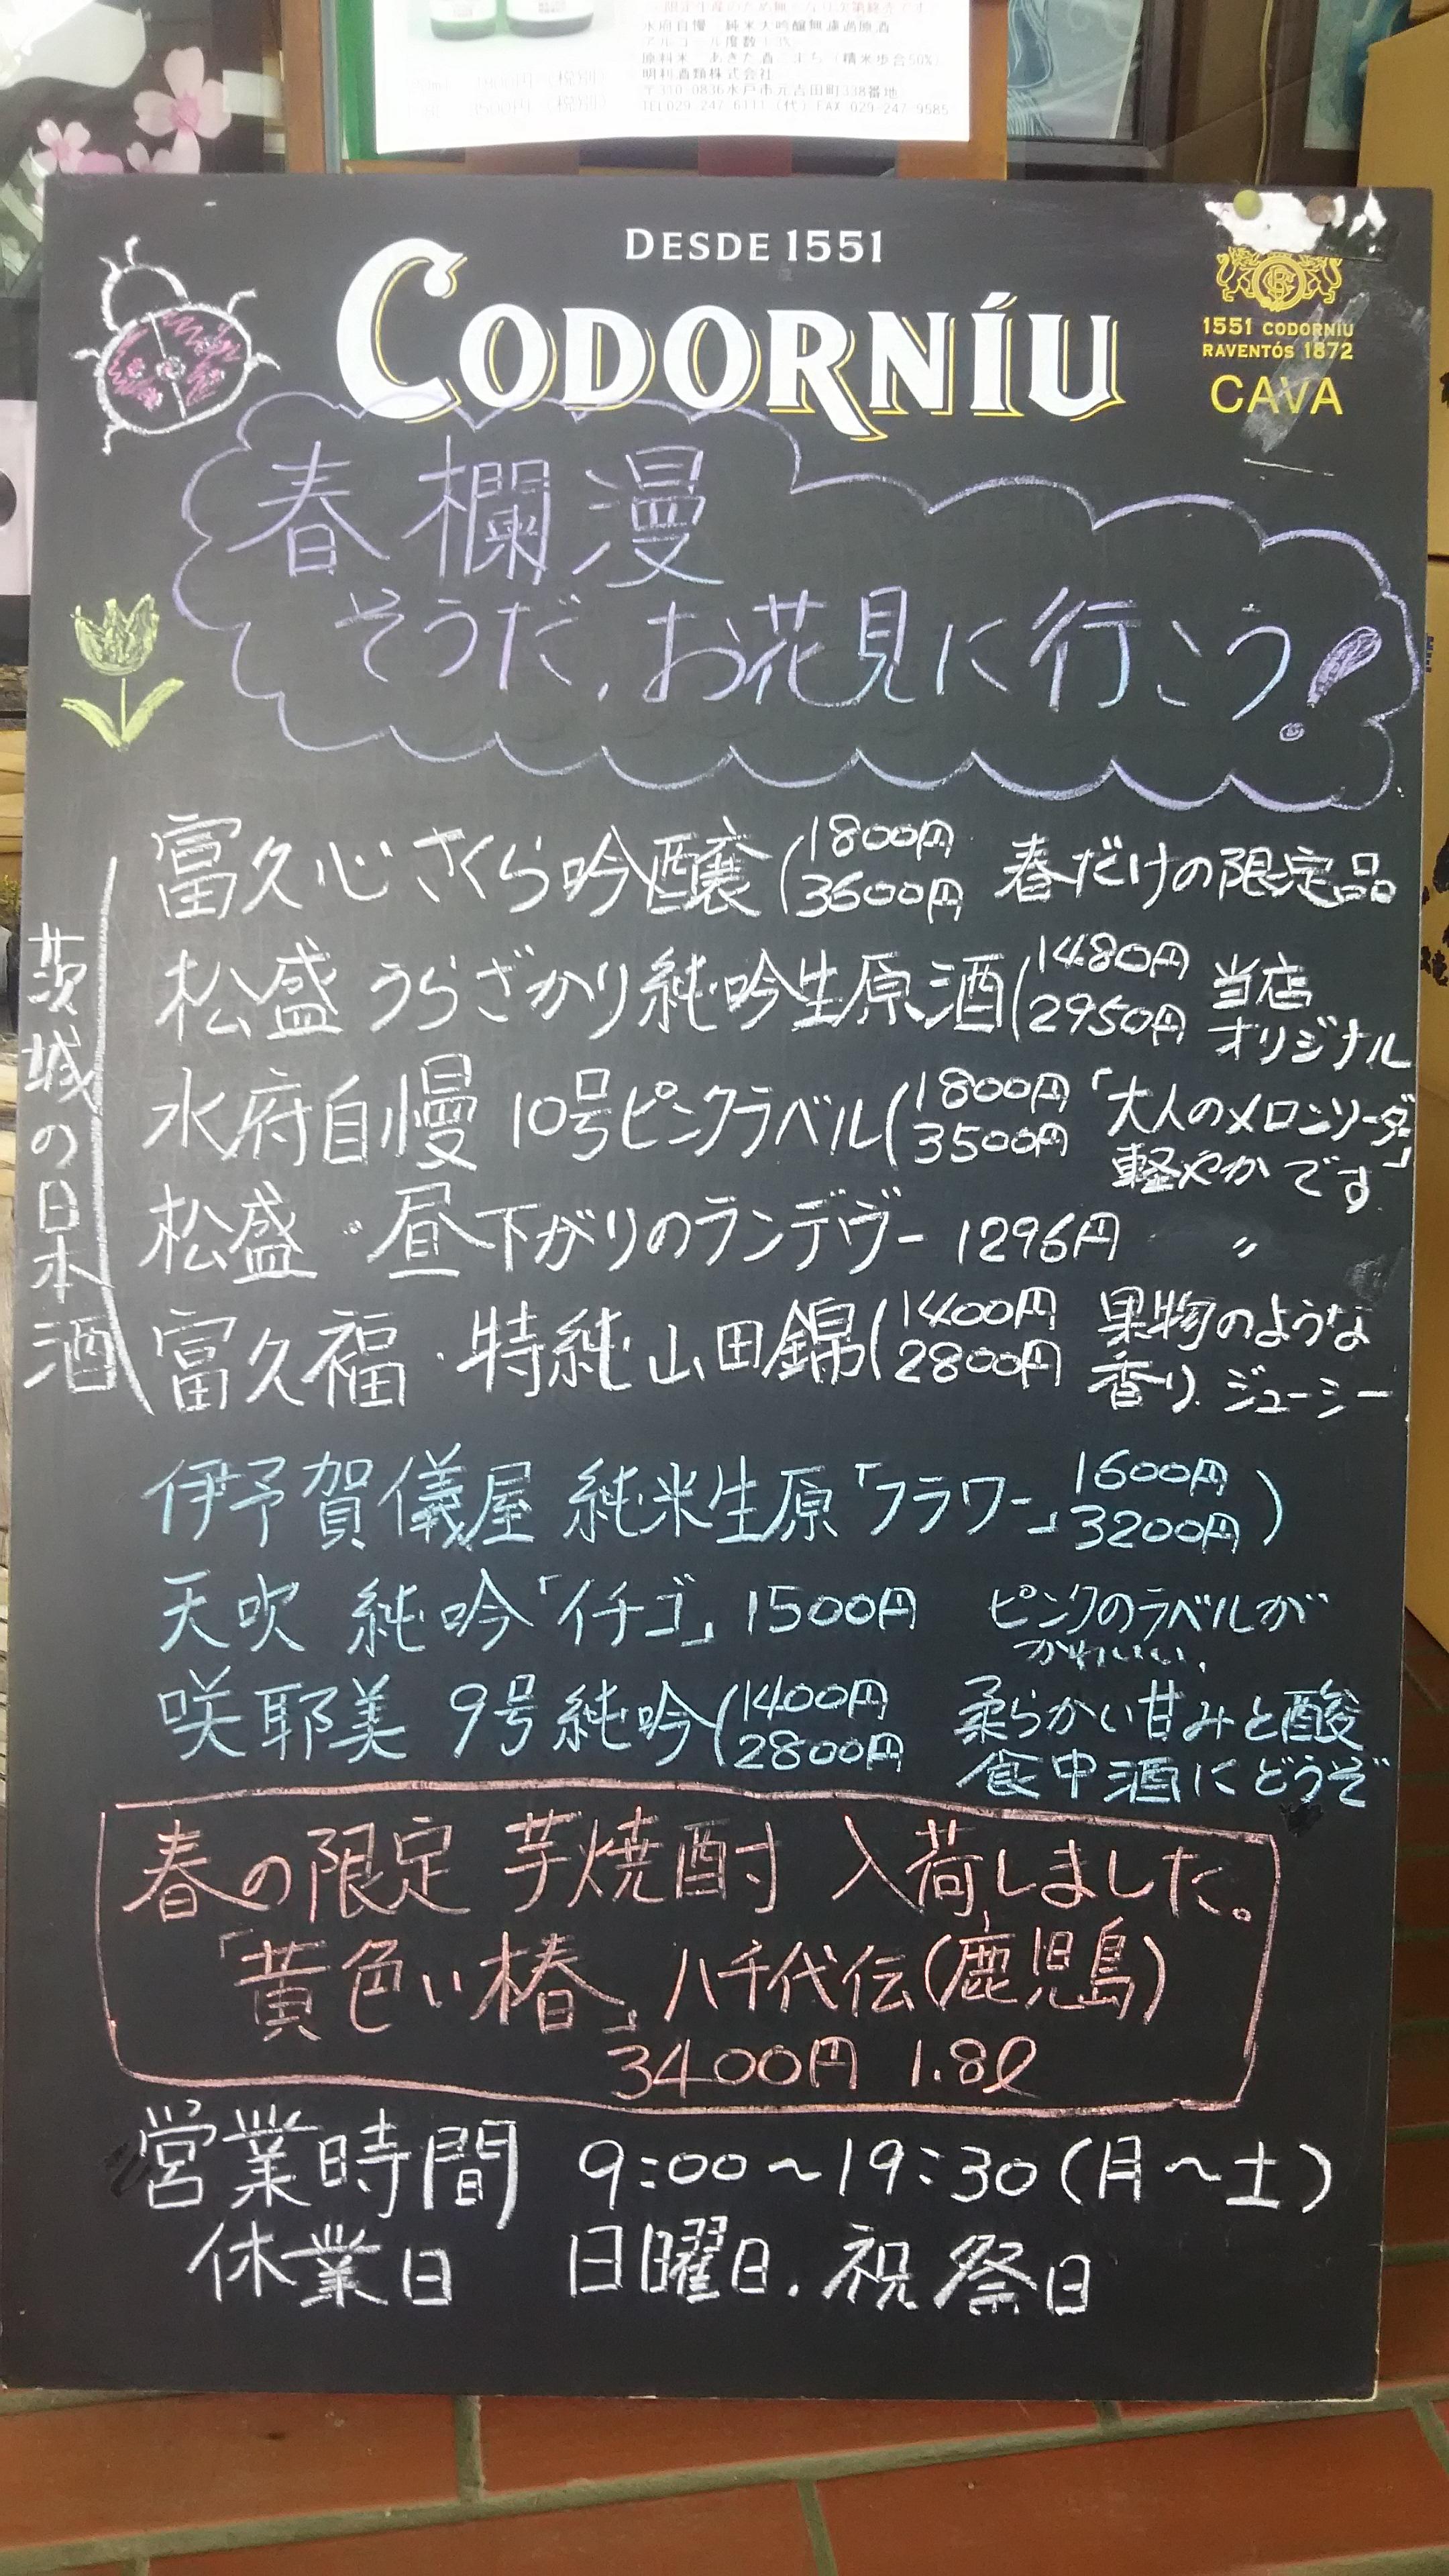 水府自慢 純米大吟醸無濾過原酒
明利酒類株式会社
〒310-0836水戸市元吉田町338番地
TEL029-247-6111（代）FAX 029-247-9585
DESDE 1551
CODORNÍU
1551 CODORNÍU
RAVENTÓS 1872
CAVA
春欄漫
そうだ、お花見に行こう!
茨城の日本酒
富久心 さくら吟醸 (1800円 3600円 春だけの限定品
松盛 うらざかり純吟生原酒 (1480円 2950円 当店オリジナル
水府自慢 10号ピンクラベル (1800円 3500円 「大人のメロンソーダ」軽やかです
松盛・昼下がりのランデヴー 1296円 〃
富久福・特純山田錦 (1400円 2800円 果物のような香り、ジューシー
伊予賀儀屋 純米生原「フラワー」 1600円 3200円)
天吹 純吟「イチゴ」 1500円 ピンクのラベルがかわいい。
咲耶美 9号純吟 (1400円 2800円 柔らかい甘みと酸 食中酒にどうぞ
春の限定 芋焼酎 入荷しました。
「黄色い椿」八千代伝(鹿児島)
3400円 1.8ℓ
営業時間 9:00～19:30(月～土)
休業日 日曜日、祝祭日